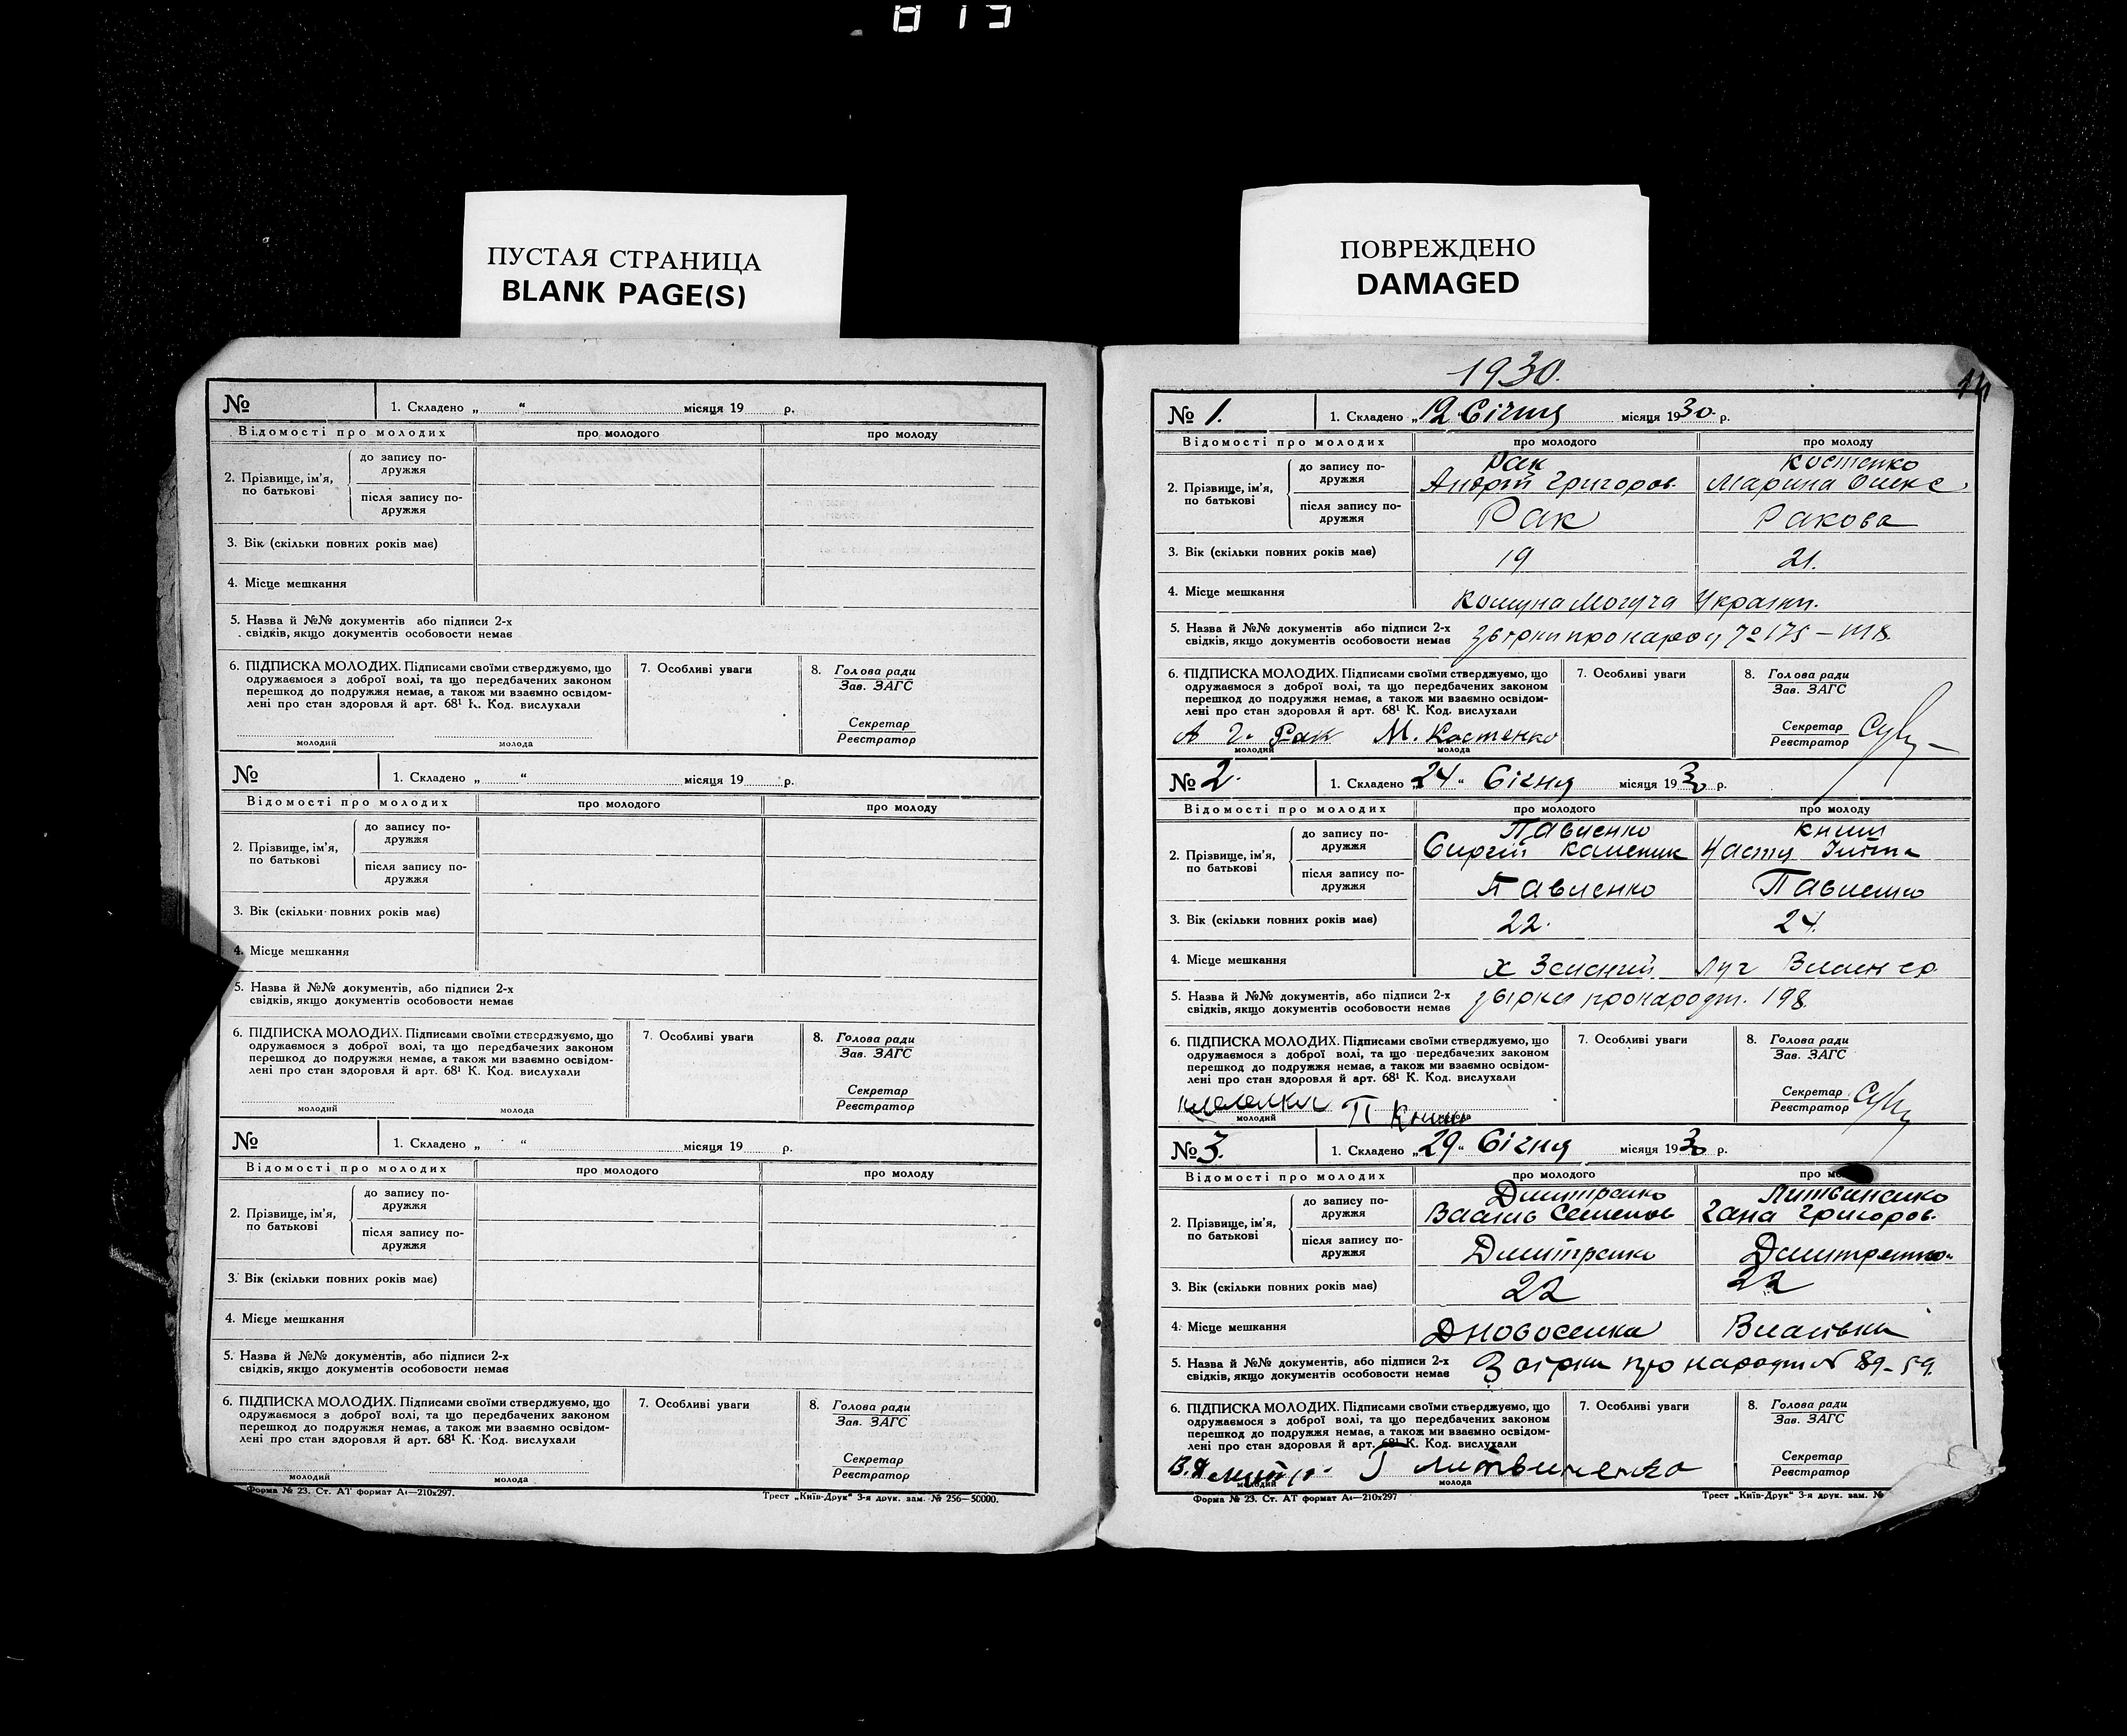 ПУСТАЯ СТРАНИЦА
BLANK PAGE(S)
№
1. Складено „ “ місяця 19 р.
Відомості про молодих про молодого про молоду
2. Прізвище, ім'я, по батькові
до запису по-
дружжя
після запису по-
дружжя
3. Вік (скільки повних років має)
4. Місце мешкання
5. Назва й №№ документів або підписи 2-х
свідків, якщо документів особовости немає
6. ПІДПИСКА МОЛОДИХ. Підписами своїми стверджуємо, що
одружаємося з доброї волі, та що передбачених законом
перешкод до подружжя немає, а також ми взаємно освідом-
лені про стан здоровля й арт. 68¹ К. Код. вислухали
молодий молода
7. Особливі уваги
8. Голова ради
Зав. ЗАГС
Секретар
Реєстратор
№
1. Складено „ “ місяця 19 р.
Відомості про молодих про молодого про молоду
2. Прізвище, ім'я, по батькові
до запису по-
дружжя
після запису по-
дружжя
3. Вік (скільки повних років має)
4. Місце мешкання
5. Назва й №№ документів, або підписи 2-х
свідків, якщо документів особовости немає
6. ПІДПИСКА МОЛОДИХ. Підписами своїми стверджуємо, що
одружаємося з доброї волі, та що передбачених законом
перешкод до подружжя немає, а також ми взаємно освідом-
лені про стан здоровля й арт. 68¹ К. Код. вислухали
молодий молода
7. Особливі уваги
8. Голова ради
Зав. ЗАГС
Секретар
Реєстратор
№
1. Складено „ “ місяця 19 р.
Відомості про молодих про молодого про молоду
2. Прізвище, ім'я, по батькові
до запису по-
дружжя
після запису по-
дружжя
3. Вік (скільки повних років має)
4. Місце мешкання
5. Назва й №№ документів, або підписи 2-х
свідків, якщо документів особовости немає
6. ПІДПИСКА МОЛОДИХ. Підписами своїми стверджуємо, що
одружаємося з доброї волі, та що передбачених законом
перешкод до подружжя немає, а також ми взаємно освідом-
лені про стан здоровля й арт. 68¹ К. Код. вислухали
молодий молода
7. Особливі уваги
8. Голова ради
Зав. ЗАГС
Секретар
Реєстратор
Форма № 23. Ст. АТ формат А₄—210х297. Трест „Київ-Друк“ 3-я друк. зам. № 256—50000.
ПОВРЕЖДЕНО
DAMAGED
1930.
№ 1.
1. Складено „12“ Січня місяця 1930 р.
Відомості про молодих про молодого про молоду
2. Прізвище, ім'я, по батькові
до запису по-
дружжя
Рак Костенко
Андрій Григоров. Марина Олекс.
після запису по-
дружжя
Рак Ракова
3. Вік (скільки повних років має) 19 21.
4. Місце мешкання комуна Могуча України.
5. Назва й №№ документів або підписи 2-х
свідків, якщо документів особовости немає
6. ПІДПИСКА МОЛОДИХ. Підписами своїми стверджуємо, що
одружаємося з доброї волі, та що передбачених законом
перешкод до подружжя немає, а також ми взаємно освідом-
лені про стан здоровля й арт. 68¹ К. Код. вислухали
А Г. Рак М. Костенко
молодий молода
7. Особливі уваги
8. Голова ради
Зав. ЗАГС
Секретар
Реєстратор
№ 2.
1. Складено „24“ Січня місяця 1930 р.
Відомості про молодих про молодого про молоду
2. Прізвище, ім'я, по батькові
до запису по-
дружжя
Павленко Книш
Сергій
після запису по-
дружжя
Павленко Павленко
3. Вік (скільки повних років має) 22. 24.
4. Місце мешкання х Зелений Луч
5. Назва й №№ документів, або підписи 2-х
свідків, якщо документів особовости немає
198.
6. ПІДПИСКА МОЛОДИХ. Підписами своїми стверджуємо, що
одружаємося з доброї волі, та що передбачених законом
перешкод до подружжя немає, а також ми взаємно освідом-
лені про стан здоровля й арт. 68¹ К. Код. вислухали
молодий молода
7. Особливі уваги
8. Голова ради
Зав. ЗАГС
Секретар
Реєстратор
№ 3.
1. Складено „29“ Січня місяця 1930 р.
Відомості про молодих про молодого
2. Прізвище, ім'я, по батькові
до запису по-
дружжя
Дмитренко Литвиненко
Василь Семенов Гана Григоров.
після запису по-
дружжя
Дмитренко Дмитренко
3. Вік (скільки повних років має) 22 22
4. Місце мешкання Власівка
5. Назва й №№ документів, або підписи 2-х
свідків, якщо документів особовости немає
89-59.
6. ПІДПИСКА МОЛОДИХ. Підписами своїми стверджуємо, що
одружаємося з доброї волі, та що передбачених законом
перешкод до подружжя немає, а також ми взаємно освідом-
лені про стан здоровля й арт. 68¹ К. Код. вислухали
Г Литвиненко
молодий молода
7. Особливі уваги
8. Голова ради
Зав. ЗАГС
Секретар
Реєстратор
Форма № 23. Ст. АТ формат А₄—210х297 Трест „Київ-Друк“ 3-я друк. зам. №